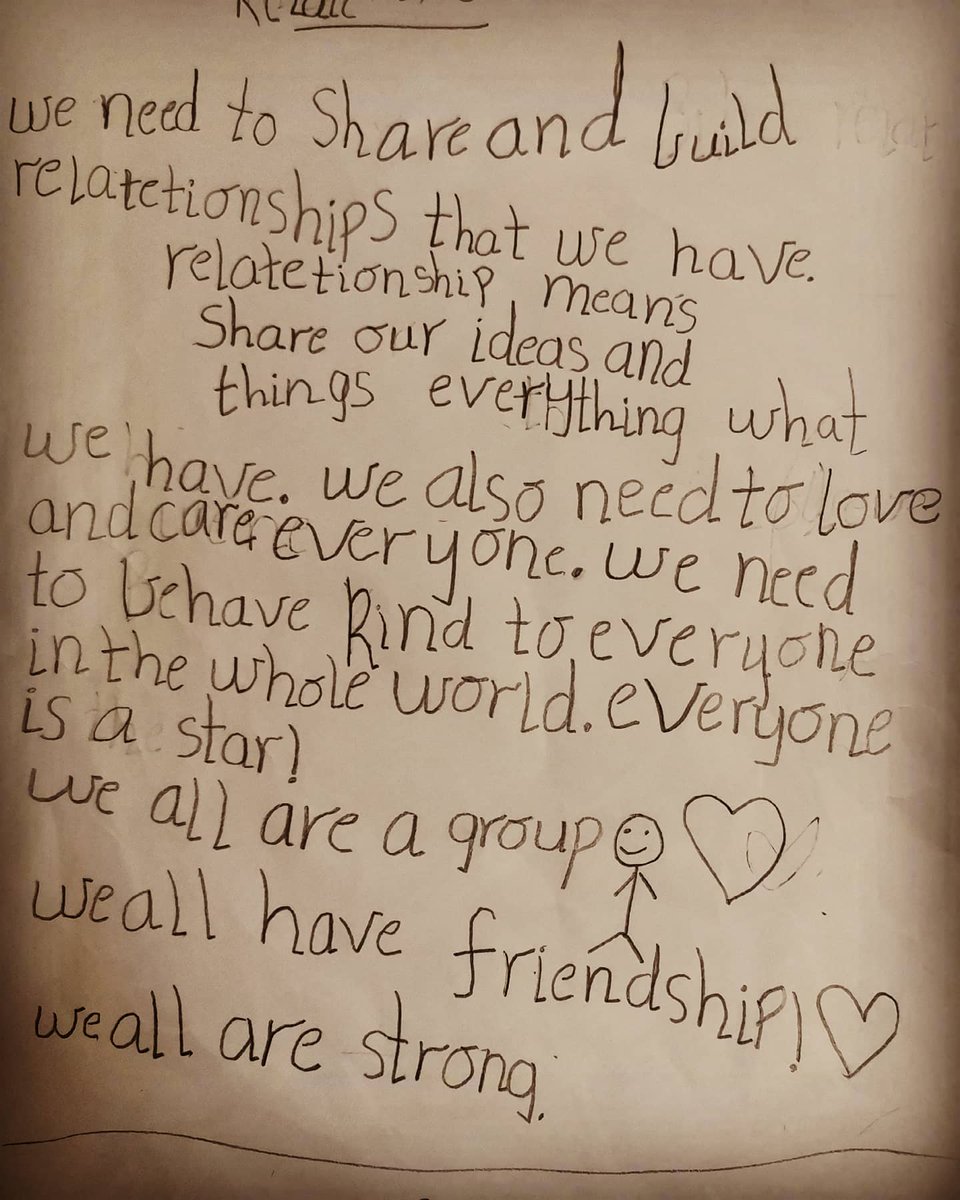 we need to Share and build
relatetionships that we have.
relatetionship means
Share our ideas and
things everything what
we have. we also need to love
and care everyone. we need
to behave kind to everyone
in the whole world. everyone
is a star!
we all are a group
we all have friendship!
we all are strong.